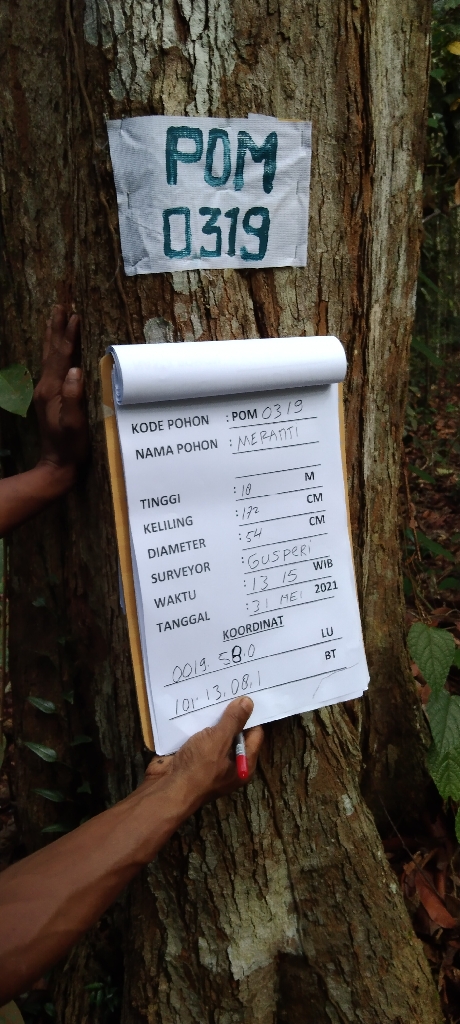 POM
0319
KODE POHON : POM 0319
NAMA POHON : MERANTI
TINGGI : 18 M
KELILING : 172 CM
DIAMETER : 54 CM
SURVEYOR : GUSPERI
WAKTU : 13 15 WIB
TANGGAL : 31 MEI 2021
KOORDINAT
0019. 58.0 LU
101. 13. 08. 1 BT